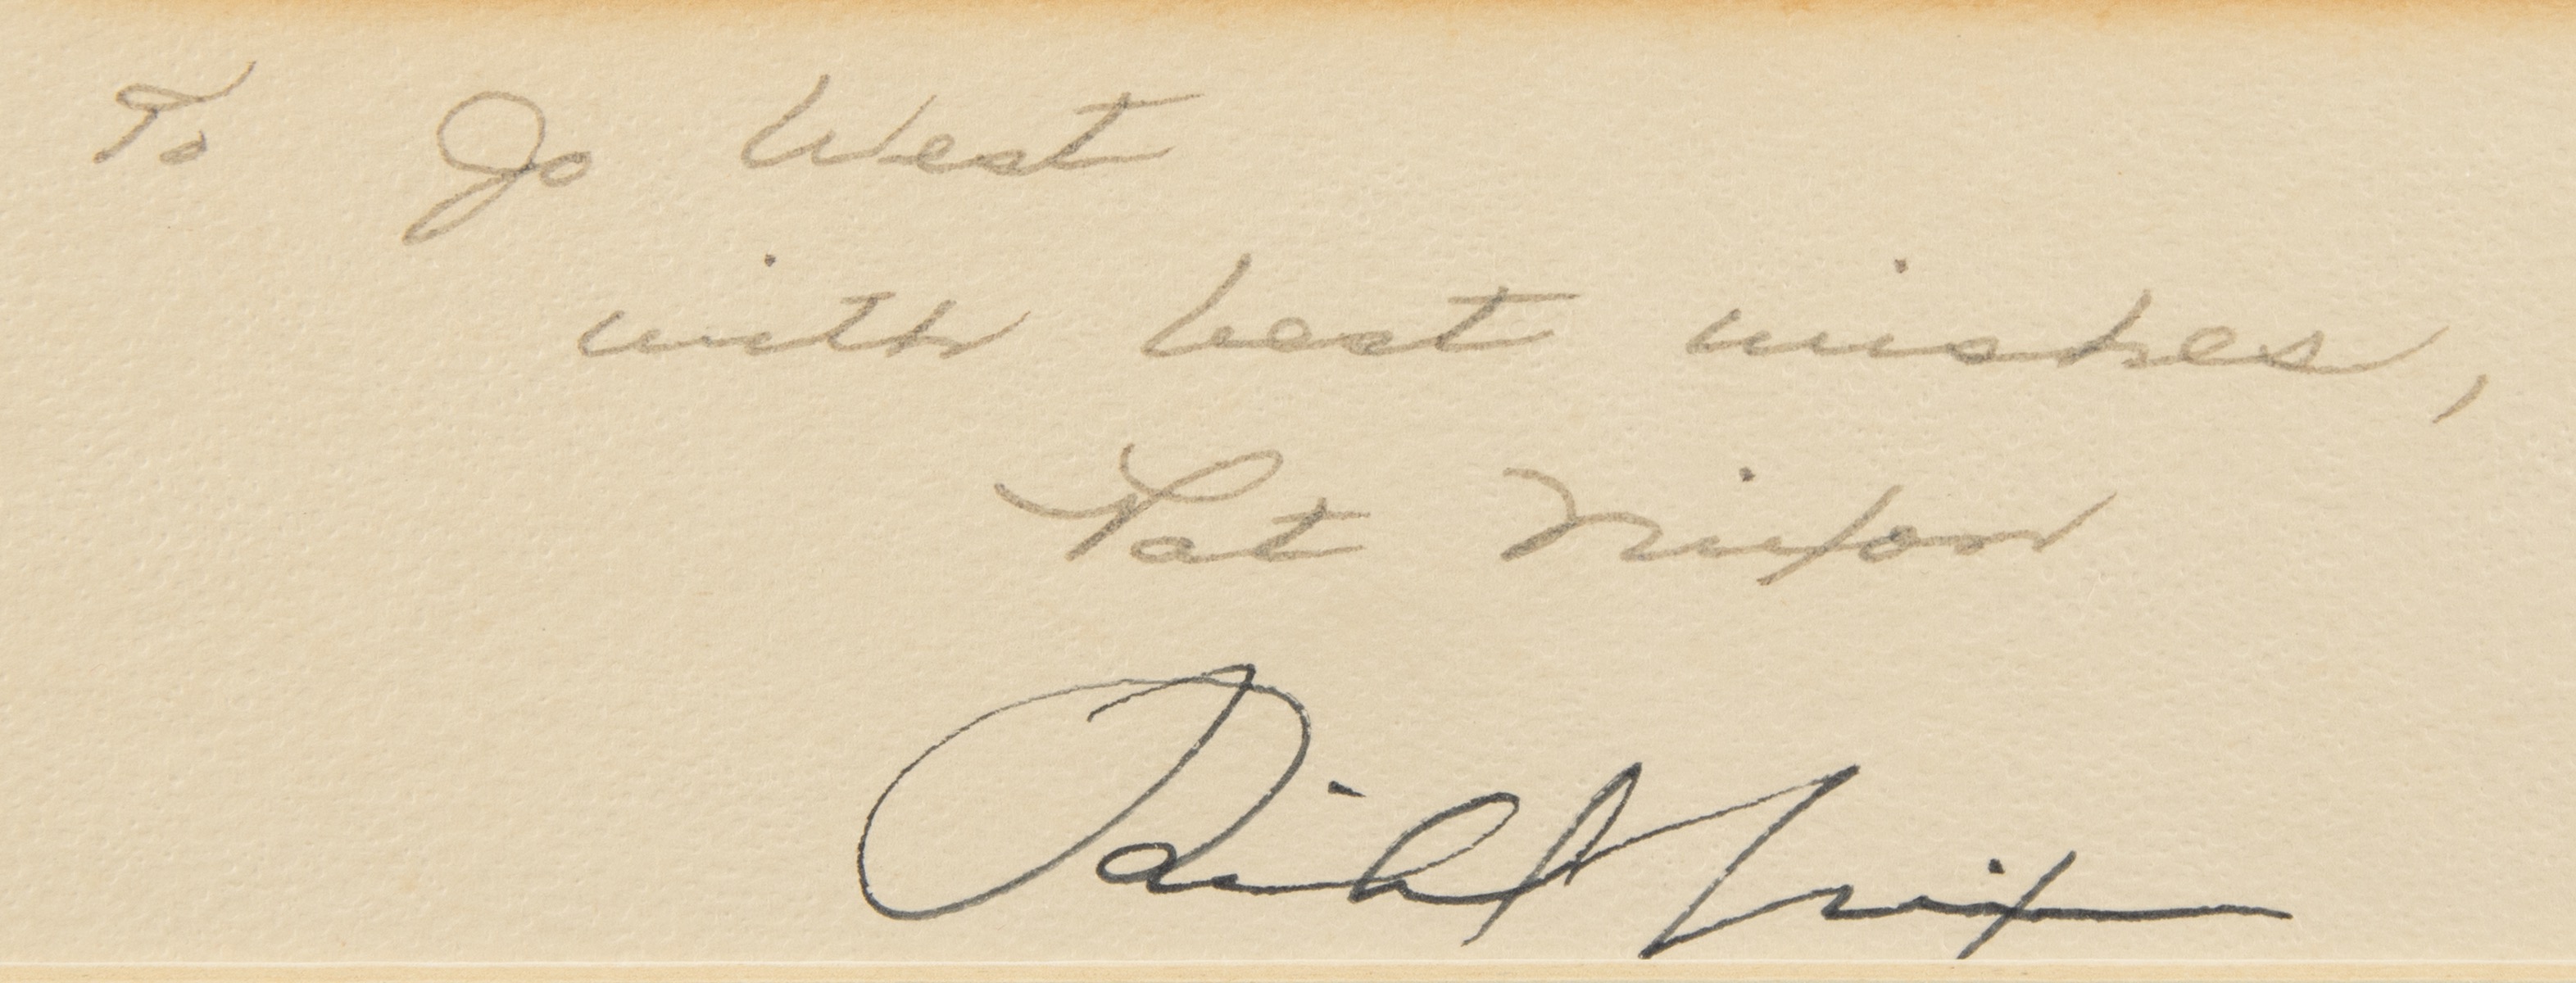 To Jo West
with best wishes,
Pat Nixon
Richard Nixon